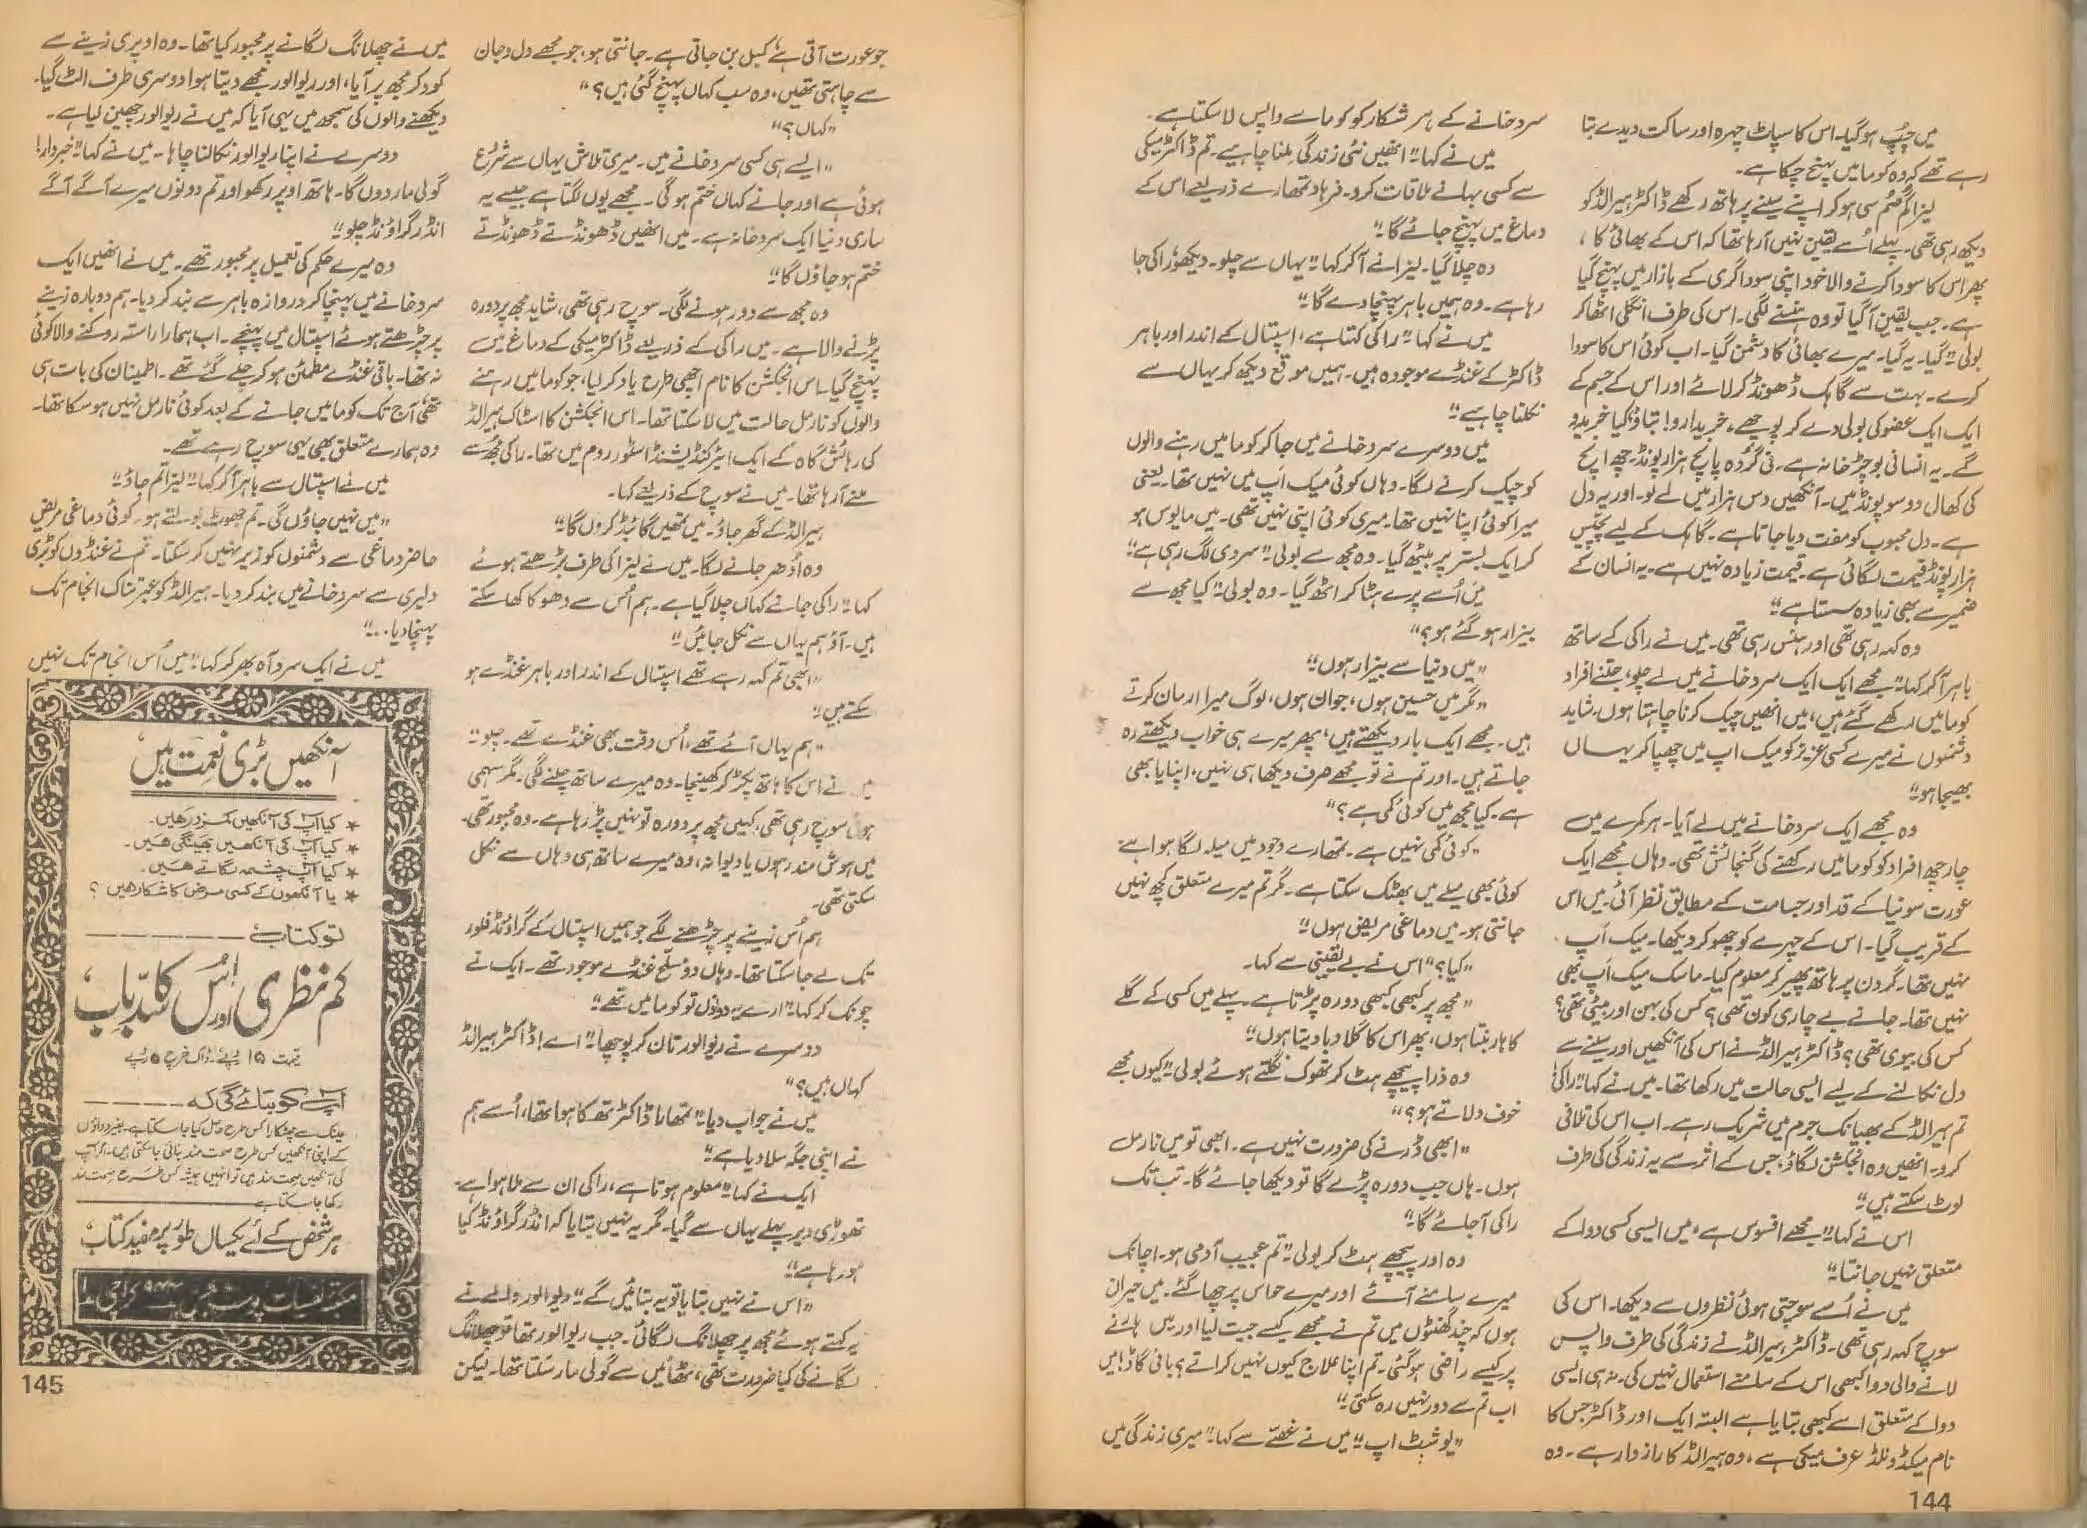 میں چپ ہوگیا۔ اس کا سپاٹ چہرہ اور ساکت دیدے بتا
رہے تھے کہ وہ کوما میں پہنچ چکا ہے۔
لیزا گم صُم سی ہو کر اپنے سینے پر ہاتھ رکھے ڈاکٹر ہیرالڈ کو
دیکھ رہی تھی۔ پہلے اُسے یقین نہیں آ رہا تھا کہ اس کے بھائی کا،
پھر اس کا سودا کرنے والا خود اپنی سوداگری کے بازار میں پہنچ گیا
ہے۔ جب یقین آگیا تو وہ ہنسنے لگی۔ اس کی طرف انگلی اٹھا کر
بولی "گیا۔ یہ گیا۔ میرے بھائی کا دشمن گیا۔ اب کوئی اس کا سودا
کرے۔ بہت سے گاہک ڈھونڈ کر لائے اور اس کے جسم کے
ایک ایک عضو کی بولی دے کر پوچھے، خریدارو! بتاؤ کیا خریدو
گے۔ یہ انسانی بوچڑ خانہ ہے۔ فی گردہ پانچ ہزار پونڈ۔ چھ انچ
کی کھال دو سو پونڈ میں۔ آنکھیں دس ہزار میں لے لو۔ اور یہ دل
ہے۔ دل محبوب کو مفت دیا جاتا ہے۔ گاہک کے لیے پچیس
ہزار پونڈ قیمت لگائی ہے۔ قیمت زیادہ نہیں ہے۔ یہ انسان کے
ضمیر سے بھی زیادہ سستا ہے"
وہ کہہ رہی تھی اور ہنس رہی تھی۔ میں نے راکی کے ساتھ
باہر آ کر کہا "مجھے ایک ایک سرد خانے میں لے چلو، جتنے افراد
کوما میں رکھے گئے ہیں، میں انھیں چیک کرنا چاہتا ہوں۔ شاید
دشمنوں نے میرے کسی عزیز کو میک اپ میں چھپا کر یہاں
بھیجا ہو"
وہ مجھے ایک سرد خانے میں لے آیا۔ ہر کمرے میں
چار چھ افراد کو کوما میں رکھنے کی گنجائش تھی۔ وہاں مجھے ایک
عورت سونیا کے قد اور جسامت کے مطابق نظر آئی۔ میں اس
کے قریب گیا۔ اس کے چہرے کو چھو کر دیکھا۔ میک اَپ
نہیں تھا۔ گردن پر ہاتھ پھیر کر معلوم کیا۔ ماسک میک اَپ بھی
نہیں تھا۔ جانے بے چاری کون تھی؟ کس کی بہن اور بیٹی تھی؟
کس کی بیوی تھی؟ ڈاکٹر ہیرالڈ نے اس کی آنکھیں اور سینے سے
دل نکالنے کے لیے ایسی حالت میں رکھا تھا۔ میں نے کہا "راکی!
تم ہیرالڈ کے بھیانک جرم میں شریک رہے۔ اب اس کی تلافی
کرو۔ انھیں وہ انجکشن لگاؤ، جس کے اثر سے یہ زندگی کی طرف
لوٹ سکتے ہیں"
اس نے کہا "مجھے افسوس ہے، میں ایسی کسی دوا کے
متعلق نہیں جانتا"
میں نے اُسے سوچتی ہوئی نظروں سے دیکھا۔ اس کی
سوچ کہہ رہی تھی۔ ڈاکٹر ہیرالڈ نے زندگی کی طرف واپس
لانے والی دوا کبھی اس کے سامنے استعمال نہیں کی۔ نہ ہی ایسی
دوا کے متعلق اسے کبھی بتایا ہے البتہ ایک اور ڈاکٹر جس کا
نام میکڈونلڈ عرف میکی ہے، وہ ہیرالڈ کا رازدار ہے۔ وہ
سرد خانے کے ہر شکار کو کوما سے واپس لا سکتا ہے۔
میں نے کہا "انھیں نئی زندگی ملنا چاہیے۔ تم ڈاکٹر میکی
سے کسی بہانے ملاقات کرو۔ فرہاد تمھارے ذریعے اس کے
دماغ میں پہنچ جائے گا"
وہ چلا گیا۔ لیزا نے آ کر کہا "یہاں سے چلو۔ دیکھو راکی جا
رہا ہے۔ وہ ہمیں باہر پہنچا دے گا"
میں نے کہا "راکی کہتا ہے، اسپتال کے اندر اور باہر
ڈاکٹر کے غنڈے موجود ہیں۔ ہمیں موقع دیکھ کر یہاں سے
نکلنا چاہیے"
میں دوسرے سرد خانے میں جا کر کوما میں رہنے والوں
کو چیک کرنے لگا۔ وہاں کوئی میک اَپ میں نہیں تھا۔ یعنی
میرا کوئی اپنا نہیں تھا۔ میری کوئی اپنی نہیں تھی۔ میں مایوس ہو
کر ایک بستر پر بیٹھ گیا۔ وہ مجھ سے بولی "سردی لگ رہی ہے"
میں اُسے پرے ہٹا کر اٹھ گیا۔ وہ بولی "کیا مجھ سے
بیزار ہو گئے ہو؟"
"میں دنیا سے بیزار ہوں"
"مگر میں حسین ہوں، جوان ہوں، لوگ میرا ارمان کرتے
ہیں۔ مجھے ایک بار دیکھتے ہیں، پھر میرے ہی خواب دیکھتے رہ
جاتے ہیں۔ اور تم نے تو مجھے صرف دیکھا ہی نہیں، اپنایا بھی
ہے۔ کیا مجھ میں کوئی کمی ہے؟"
"کوئی کمی نہیں ہے۔ تمھارے وجود میں میلہ لگا ہوا ہے
کوئی بھی میلے میں بھٹک سکتا ہے۔ مگر تم میرے متعلق کچھ نہیں
جانتی ہو۔ میں دماغی مریض ہوں"
"کیا؟" اس نے بے یقینی سے کہا۔
"مجھ پر کبھی کبھی دورہ پڑتا ہے۔ پہلے میں کسی کے گلے
کا ہار بنتا ہوں، پھر اس کا گلا دبا دیتا ہوں"
وہ ذرا پیچھے ہٹ کر تھوک نگلتے ہوئے بولی "کیوں مجھے
خوف دلاتے ہو؟"
"ابھی ڈرنے کی ضرورت نہیں ہے۔ ابھی تو میں نارمل
ہوں۔ ہاں جب دورہ پڑے گا تو دیکھا جائے گا۔ تب تک
راکی آ جائے گا"
وہ اور پیچھے ہٹ کر بولی "تم عجیب آدمی ہو۔ اچانک
میرے سامنے آئے اور میرے حواس پر چھا گئے۔ میں حیران
ہوں کہ چند گھنٹوں میں تم نے مجھے کیسے جیت لیا اور میں ہارنے
پر کیسے راضی ہوگئی۔ تم اپنا علاج کیوں نہیں کراتے؟ بائی گاڈ! میں
اب تم سے دور نہیں رہ سکتی"
"یو شٹ اپ" میں نے غصے سے کہا "میری زندگی میں
144
جو عورت آتی ہے، کمبل بن جاتی ہے۔ جانتی ہو، جو مجھے دل و جان
سے چاہتی تھیں، وہ سب کہاں پہنچ گئی ہیں؟"
"کہاں؟"
"ایسے ہی کسی سرد خانے میں۔ میری تلاش یہاں سے شروع
ہوئی ہے اور جانے کہاں ختم ہوگی۔ مجھے یوں لگتا ہے جیسے یہ
ساری دنیا ایک سرد خانہ ہے۔ میں انھیں ڈھونڈتے ڈھونڈتے
ختم ہو جاؤں گا"
وہ مجھ سے دور ہونے لگی۔ سوچ رہی تھی، شاید مجھ پر دورہ
پڑنے والا ہے۔ میں راکی کے ذریعے ڈاکٹر میکی کے دماغ میں
پہنچ گیا۔ اس انجکشن کا نام اچھی طرح یاد کر لیا، جو کوما میں رہنے
والوں کو نارمل حالت میں لا سکتا تھا۔ اس انجکشن کا اسٹاک ہیرالڈ
کی رہائش گاہ کے ایک ائیر کنڈیشنڈ اسٹور روم میں تھا۔ راکی مجھ سے
ملنے آ رہا تھا۔ میں نے سوچ کے ذریعے کہا۔
ہیرالڈ کے گھر جاؤ۔ میں تمھیں گائیڈ کروں گا"
وہ اُدھر جانے لگا۔ میں نے لیزا کی طرف بڑھتے ہوئے
کہا "راکی جانے کہاں چلا گیا ہے۔ ہم اُس سے دھوکا کھا سکتے
ہیں۔ آؤ ہم یہاں سے نکل جائیں"
"ابھی تم کہہ رہے تھے اسپتال کے اندر اور باہر غنڈے ہو
سکتے ہیں"
"ہم یہاں آئے تھے، اُس وقت بھی غنڈے تھے۔ چلو"
میں نے اس کا ہاتھ پکڑ کر کھینچا۔ وہ میرے ساتھ چلنے لگی۔ مگر سہمی
ہوئی سوچ رہی تھی، کہیں مجھ پر دورہ تو نہیں پڑ رہا ہے۔ وہ مجبور تھی۔
میں ہوش مند رہوں یا دیوانہ، وہ میرے ساتھ ہی وہاں سے نکل
سکتی تھی۔
ہم اُس زینے پر چڑھنے لگے جو ہمیں اسپتال کے گراؤنڈ فلور
تک لے جا سکتا تھا۔ وہاں دو مسلح غنڈے موجود تھے۔ ایک نے
چونک کر کہا "ارے یہ دونوں تو کوما میں تھے"
دوسرے نے ریوالور تان کر پوچھا "اے! ڈاکٹر ہیرالڈ
کہاں ہیں؟"
میں نے جواب دیا "تمھارا ڈاکٹر تھکا ہوا تھا، اُسے ہم
نے اپنی جگہ سلا دیا ہے"
ایک نے کہا "معلوم ہوتا ہے، راکی ان سے ملا ہوا ہے۔
تھوڑی دیر پہلے یہاں سے گیا۔ مگر یہ نہیں بتایا کہ انڈر گراؤنڈ کیا
ہو رہا ہے"
"اس نے نہیں بتایا تو یہ بتائیں گے" ریوالور والے نے
یہ کہتے ہوئے مجھ پر چھلانگ لگائی۔ جب ریوالور تھا تو چھلانگ
لگانے کی کیا ضرورت تھی، ٹھائیں سے گولی مار سکتا تھا۔ لیکن
میں نے چھلانگ لگانے پر مجبور کیا تھا۔ وہ اوپری زینے سے
کود کر مجھ پر آیا، اور ریوالور مجھے دیتا ہوا دوسری طرف الٹ گیا۔
دیکھنے والوں کی سمجھ میں یہی آیا کہ میں نے ریوالور چھین لیا ہے۔
دوسرے نے اپنا ریوالور نکالنا چاہا۔ میں نے کہا "خبردار!
گولی مار دوں گا۔ ہاتھ اوپر رکھو اور تم دونوں میرے آگے آگے
انڈر گراؤنڈ چلو"
وہ میرے حکم کی تعمیل پر مجبور تھے۔ میں نے انھیں ایک
سرد خانے میں پہنچا کر دروازہ باہر سے بند کر دیا۔ ہم دوبارہ زینے
پر چڑھتے ہوئے اسپتال میں پہنچے۔ اب ہمارا راستہ روکنے والا کوئی
نہ تھا۔ باقی غنڈے مطمئن ہو کر چلے گئے تھے۔ اطمینان کی بات ہی
تھی، آج تک کوما میں جانے کے بعد کوئی نارمل نہیں ہو سکا تھا۔
وہ ہمارے متعلق بھی یہی سوچ رہے تھے۔
میں نے اسپتال سے باہر آ کر کہا "لیزا تم جاؤ"
"میں نہیں جاؤں گی۔ تم جھوٹ بولتے ہو۔ کوئی دماغی مریض
حاضر دماغی سے دشمنوں کو زیر نہیں کر سکتا۔ تم نے غنڈوں کو بڑی
دلیری سے سرد خانے میں بند کر دیا۔ ہیرالڈ کو عبرتناک انجام تک
پہنچا دیا..."
میں نے ایک سرد آہ بھر کر کہا "میں اُس انجام تک نہیں
آنکھیں بڑی نعمت ہیں
* کیا آپ کی آنکھیں کمزور ہیں۔
* کیا آپ کی آنکھیں بھینگی ہیں۔
* کیا آپ چشمہ لگاتے ہیں۔
* یا آنکھوں کے کسی مرض کا شکار ہیں؟
تو کتاب
کم نظری اور اُس کا سدِّباب
قیمت ۱۵ روپے۔ ڈاک خرچ ۵ روپے
آپ کو بتائے گی کہ
عینک سے چھٹکارا کس طرح حاصل کیا جا سکتا ہے۔ بغیر دواؤں
کے اپنی آنکھیں کس طرح صحت مند بنائی جا سکتی ہیں۔ اگر آپ
کی آنکھیں صحت مند ہیں تو انہیں ہمیشہ کس طرح صحت مند
رکھا جا سکتا ہے
ہر شخص کے لئے یکساں طور پر مفید کتاب
مکتبہ نفسیات پوسٹ بکس کراچی
145